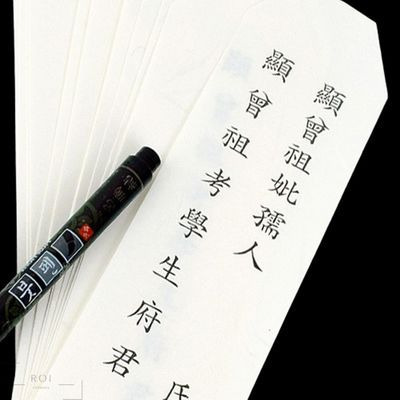 顯曾祖妣孺人
顯曾祖考學生府君
붓펜
ROI